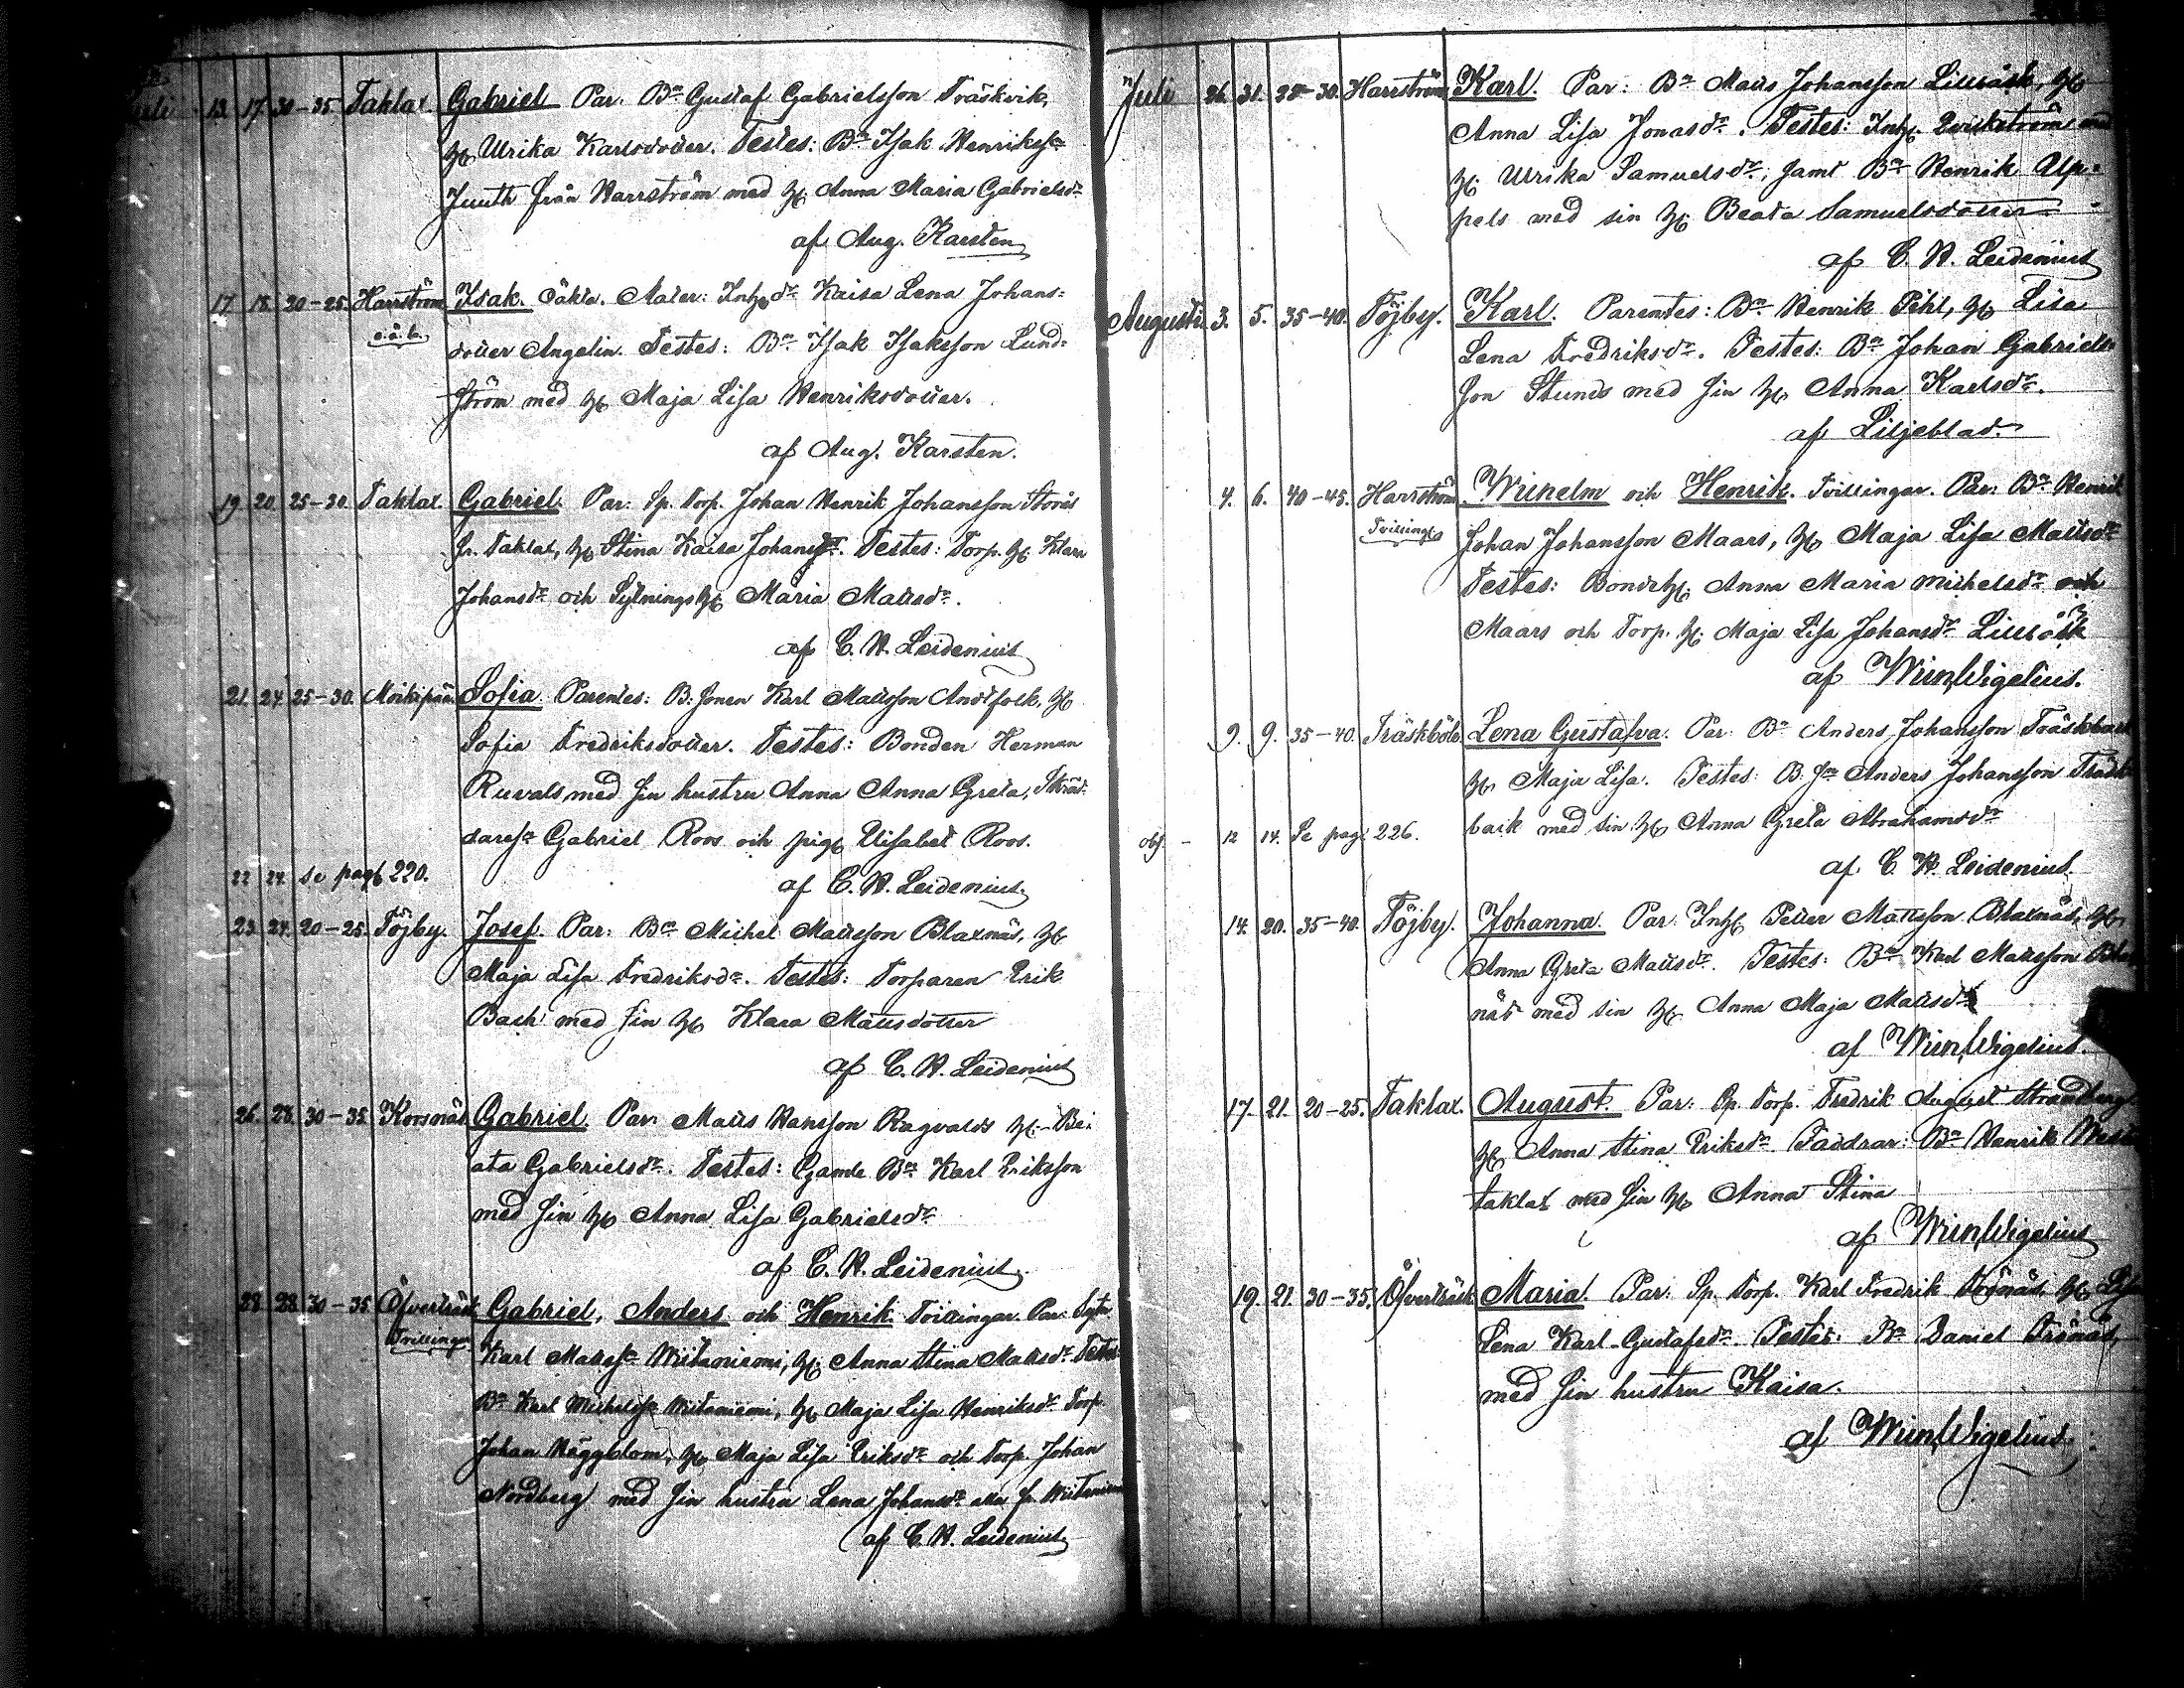 Juli 13. 17. 30-35 Taklax. Gabriel Par. Bn Gustaf Gabrielsson Träskvik,
Hu Ulrika Karlsdotter. Testes: Bn Isak Henrikssn
Juuth från Harrström med Hu Anna Maria Gabrielsdr
af Aug. Karsten
17. 18. 20-25. Harrström Isak. Oäkta. Mater: Inhdr Kaisa Lena Johans-
o.ä.b. dotter Angelin. Testes: Bn Isak Isaksson Lund-
ström med Hu Maja Lisa Henriksdotter.
af Aug. Karsten.
19. 20. 25-30 Taklax. Gabriel. Par: Sp. Torp. Johan Henrik Johansson Storås
fr. Taklax, Hu Stina Kaisa Johansdr. Testes: Torp. Hu Klara
Johansdr och Sytnings Hu Maria Mattsdr.
af C. H. Leidenius
21. 24. 25-30. Moikipää Sofia Parentes: B. sonen Karl Mattsson Andtfolk, Hu
Sofia Fredriksdotter. Testes: Bonden Herman
Ruvals med sin hustru Anna Anna Greta, Skräd-
daresn Gabriel Roos och pig. Elisabet Roos.
22 24. se pag 220.
af C. H. Leidenius.
23. 24. 20-25. Töjby. Josef Par: Bn Michel Mattsson Blaxnäs, Hu
Maja Lisa Fredriksdr. Testes: Torparen Erik
Back med sin Hu Klara Mattsdotter
af C. H. Leidenius
26. 28. 30-35. Korsnäs Gabriel. Par: Matts Hansson Ragvalds Hu Be-
ata Gabrielsdr. Testes: Gamle Bn Karl Eriksson
med sin Hu Anna Lisa Gabrielsdr
af C. H. Leidenius.
28 28. 30-35 Öfverträsk Gabriel, Anders och Henrik. Trillingar. Par: Sytn.
Trillingar Karl Matssn Wiitaniemi, Hu Anna Stina Mattsdr Testes
Bn Karl Michelssn Wiitaniemi, Hu Maja Lisa Henriksdr Torp.
Johan Häggblom, Hu Maja Lisa Eriksdr och Torp. Johan
Nordberg med sin hustru Lena Johansdr alla fr. Wiitaniemi
af C. H. Leidenius.
Juli 26. 31. 28-30. Harrström Karl. Par: Bn Matts Johansson Lillbäck, Hu
Anna Lisa Jonasdr. Testes: Inh. Qvickström med
Hu Ulrika Samuelsdr, samt Bn Henrik Alp-
pels med sin Hu Beata Samuelsdotter
af C. H. Leidenius
Augusti 3. 5. 35-40. Töjby. Karl. Parentes: Bn Henrik Pihl, Hu Lisa
Lena Fredriksdr. Testes: Bn Johan Gabriels-
son Stunds med sin Hu Anna Karlsdr.
af Liljeblad.
4. 6. 40-45. Harrström Wilhelm och Henrik. Tvillingar. Par: Bn Henrik
Tvillingar Johan Johansson Maars, Hu Maja Lisa Mattsdr
Testes: Bonde Hu Anna Maria Michelsdr och
Maars och Torp. Hu Maja Lisa Johansdr Lillbäck
af Wilh. Wigelius.
9. 9. 35-40. Träskböle Lena Gustafva. Par: Bn Anders Johansson Träskback
Hu Maja Lisa. Testes: B. sn Anders Johansson Träsk-
obs. - 12 14. Se pag 226. back med sin Hu Anna Greta Abrahamsdr
af C. H. Leidenius.
14. 20. 35-40. Töjby. Johanna. Par: Inh. Petter Mattsson Blaxnäs, Hu
Anna Greta Mattsdr. Testes: Bn Karl Mattsson Blax-
näs med sin Hu Anna Maja Mattsdr
af Wilh. Wigelius.
17. 21. 20-25. Taklax. August. Par: Sp. Torp. Fredrik August Strandberg
Hu Anna Stina Eriksdr Faddrar: Bn Henrik West-
taklax med sin Hu Anna Stina
af Wilh. Wigelius
19. 21. 30-35. Öfverträsk Maria. Par: Sp. Torp. Karl Fredrik Trönäs, Hu Lisa
Lena Karl-Gustafsdr Testes: Bn Daniel Trönäs,
med sin hustru Kaisa.
af Wilh. Wigelius.